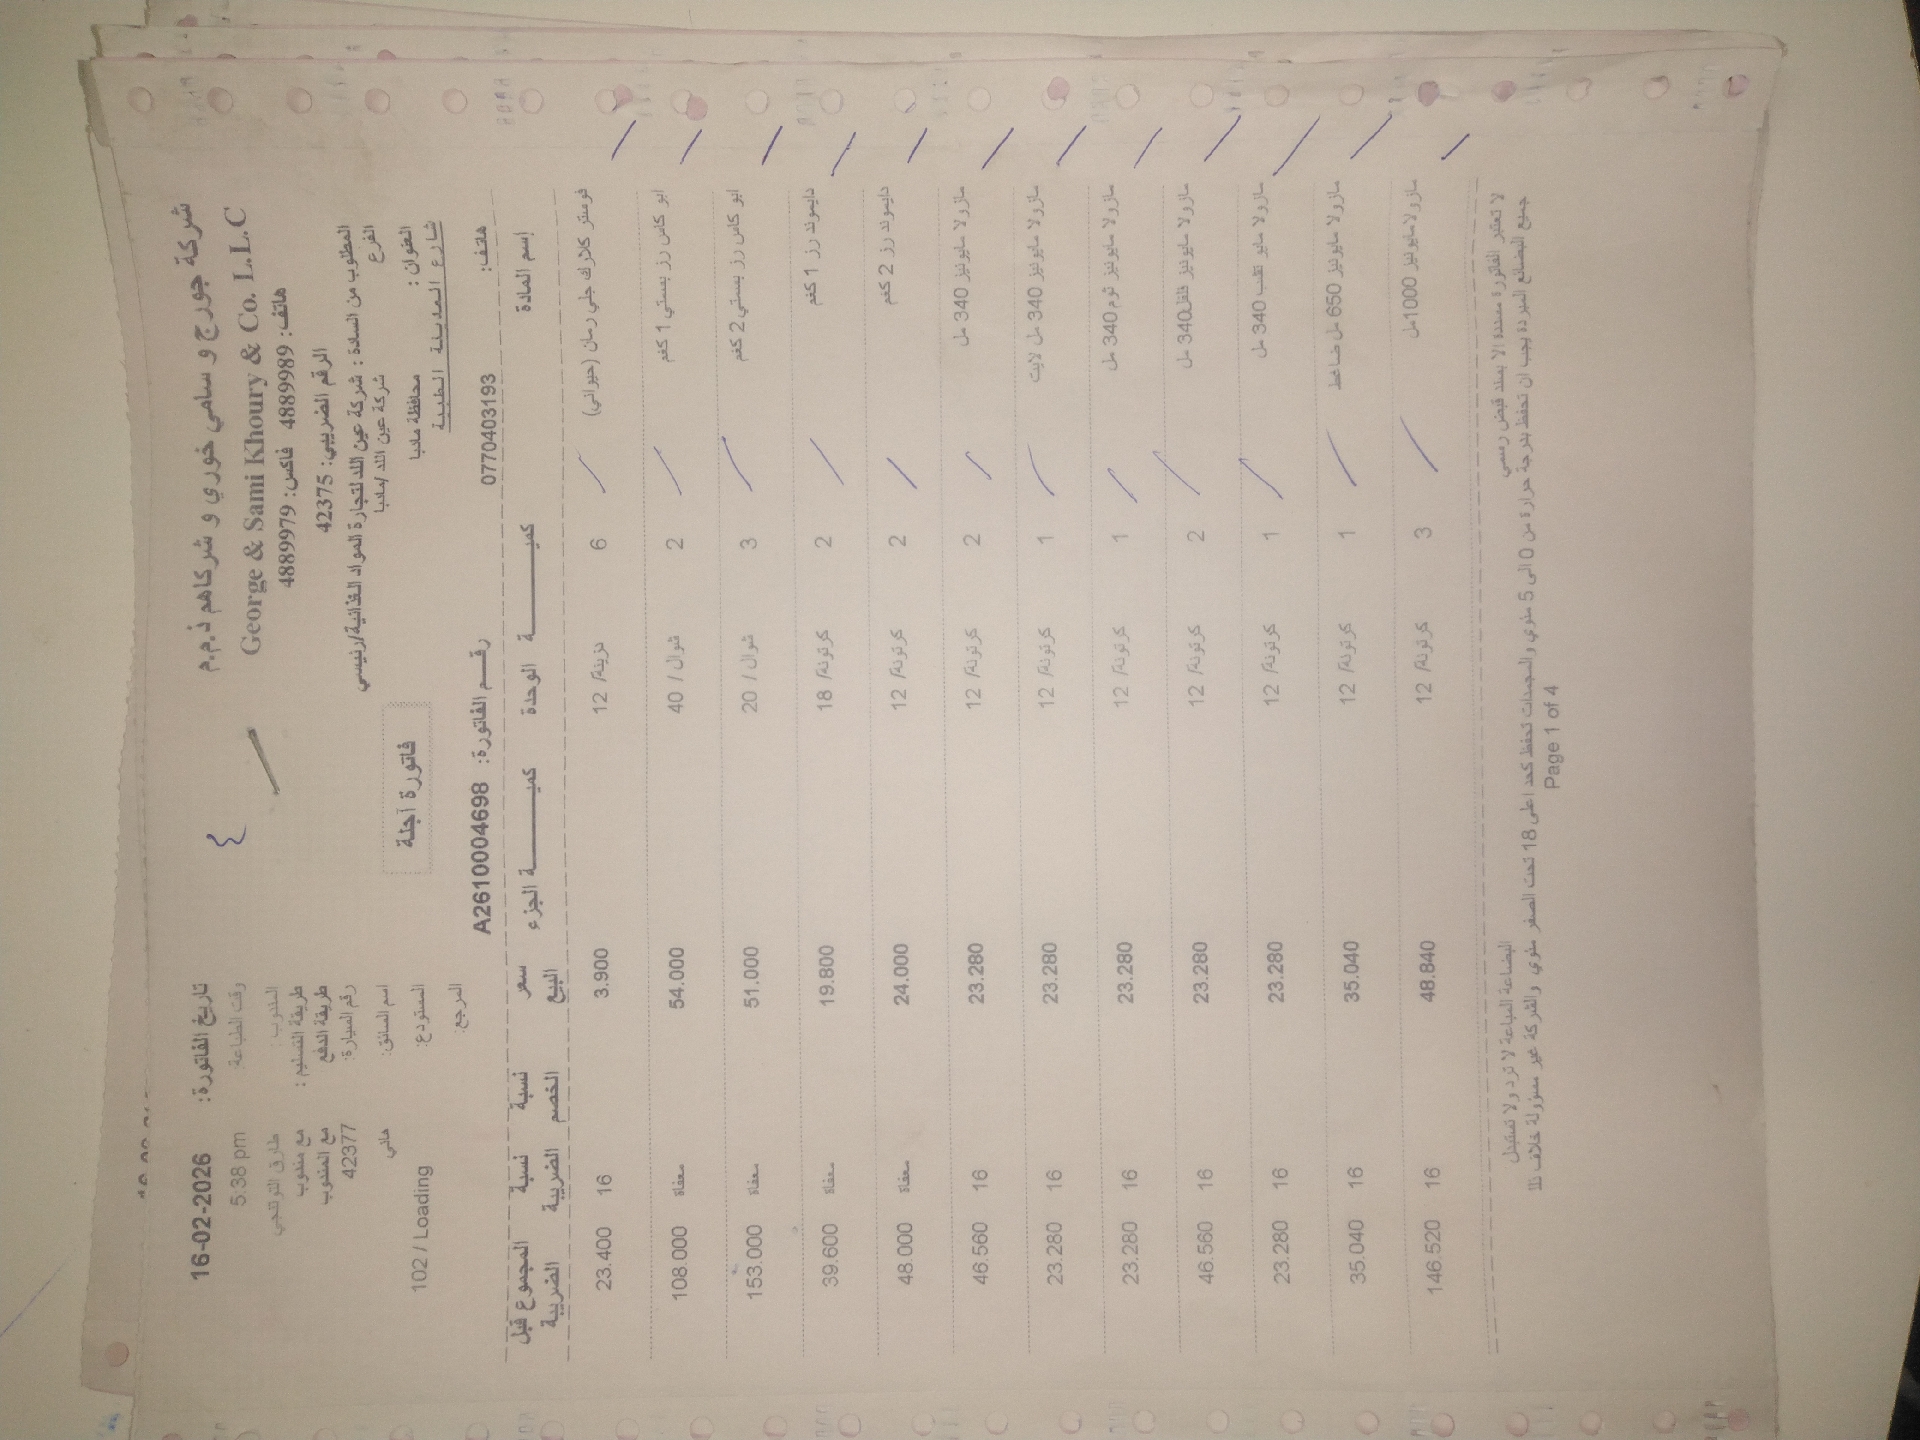 شركة جورج و سامي خوري و شركاهم ذ.م.م
George & Sami Khoury & Co. L.L.C
هاتف: 4889989 فاكس: 4889979
الرقم الضريبي: 42375
المطلوب من السادة : شركة عين اللد لتجارة المواد الغذائية/رئيسي
الفرع شركة عين اللد /مادبا
العنوان : محافظة مادبا
شارع المدينة الطبية
هاتف: 0770403193
تاريخ الفاتورة: 16-02-2026
وقت الطباعة: 5:38 pm
المندوب : طارق
طريقة التسليم : مع مندوب
طريقة الدفع مع المندوب
رقم السيارة: 42377
اسم السائق: هاني
المستودع: 102 / Loading
المرجع:
فاتورة آجلة
رقم الفاتورة: A2610004698
إسم المادة كميـــــة الوحدة كميـــــة الجزء سعر البيع نسبة الخصم نسبة الضريبة المجموع قبل الضريبة
فوستر كلارك جلي رمان (حيواني) 6 دزينة/ 12 3.900 16 23.400
ابو كاس رز بسمتي 1 كغم 2 شوال / 40 54.000 معفاة 108.000
ابو كاس رز بسمتي 2 كغم 3 شوال / 20 51.000 معفاة 153.000
دايموند رز 1 كغم 2 كرتونة/ 18 19.800 معفاة 39.600
دايموند رز 2 كغم 2 كرتونة/ 12 24.000 معفاة 48.000
مازولا مايونيز 340 مل 2 كرتونة/ 12 23.280 16 46.560
مازولا مايونيز 340 مل لايت 1 كرتونة/ 12 23.280 16 23.280
مازولا مايونيز ثوم 340 مل 1 كرتونة/ 12 23.280 16 23.280
مازولا مايونيز فلفل 340 مل 2 كرتونة/ 12 23.280 16 46.560
مازولا مايو نقلب 340 مل 1 كرتونة/ 12 23.280 16 23.280
مازولا مايونيز 650 مل ضاغط 1 كرتونة/ 12 35.040 16 35.040
مازولا مايونيز 1000 مل 3 كرتونة/ 12 48.840 16 146.520
لا تعتبر الفاتورة مسددة الا بسند قبض رسمي
البضاعة المباعة لا ترد ولا تستبدل
جميع البضائع المبردة يجب ان تحفظ بدرجة حرارة من 0 الى 5 مئوي والمجمدات تحفظ كحد اعلى 18 تحت الصفر مئوي والشركة غير مسؤولة خلاف ذلك
Page 1 of 4